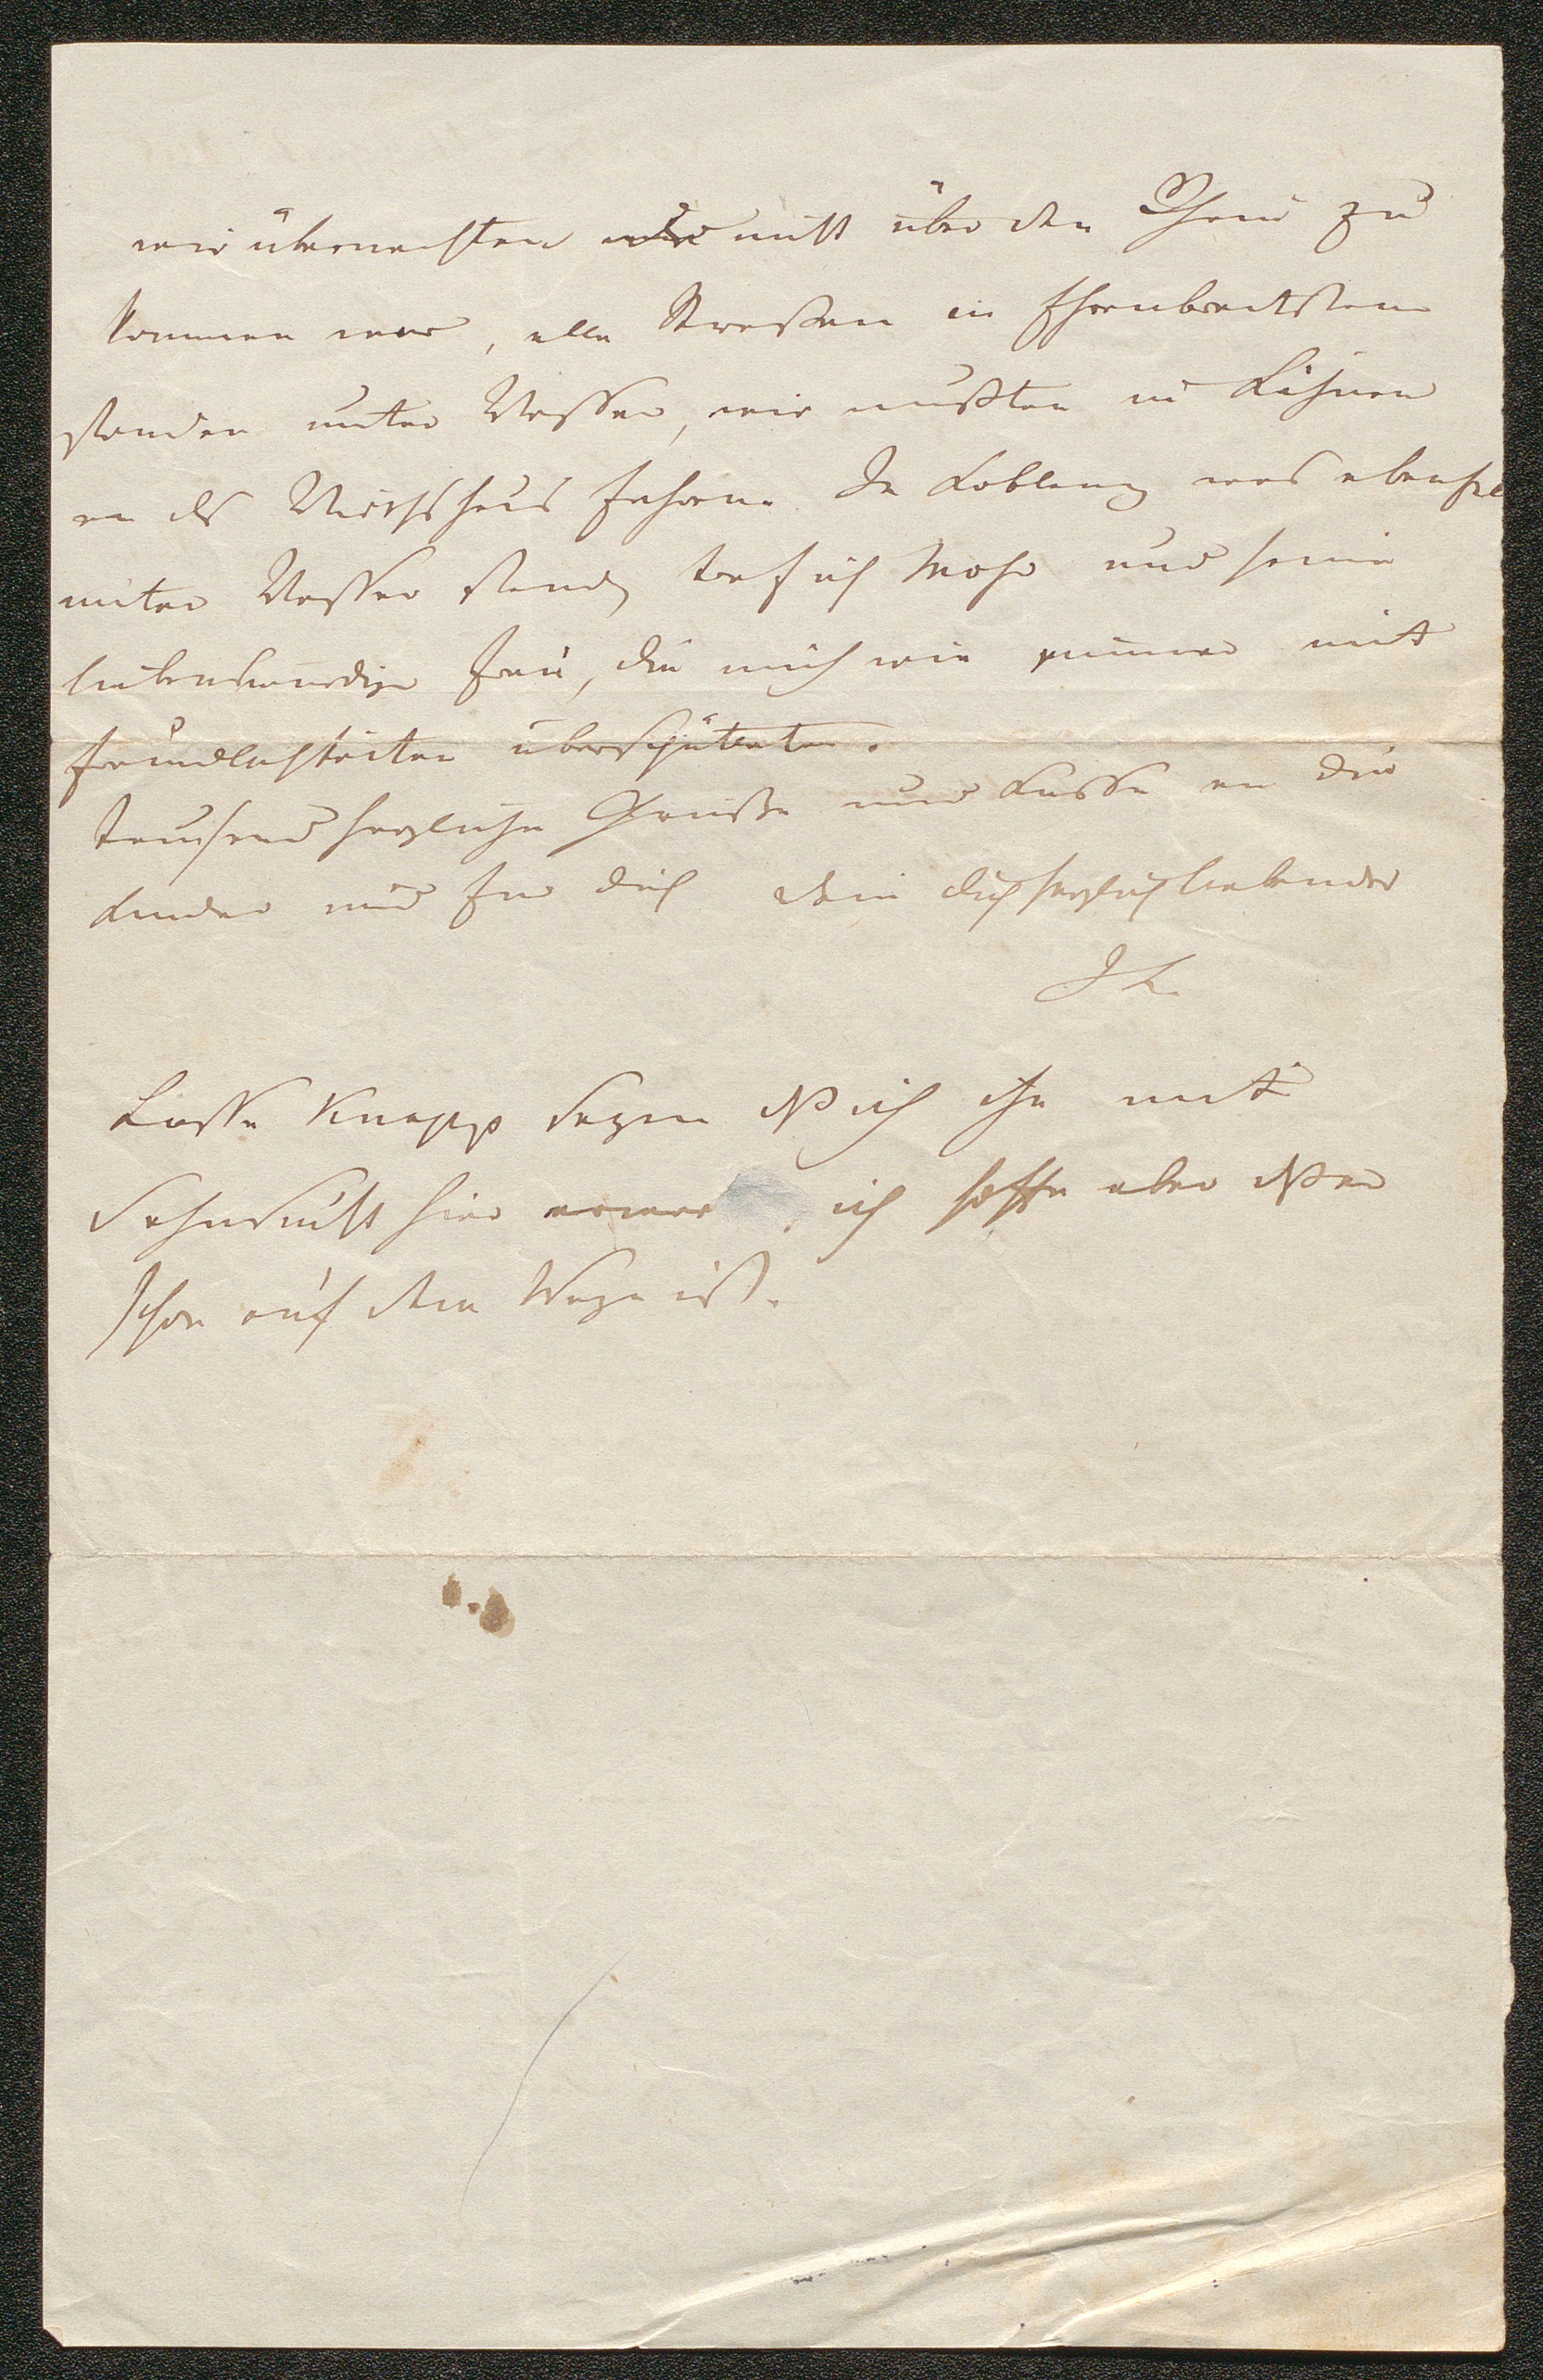 wir übernachten da nicht über den Rhein zu
kommen war, alle Straßen in Ehrenbreitstein
standen unter Wasser, wir mußten in Kähnen
an das Wirthshaus fahren. In Koblenz was ebenfalls
unter Wasser stand, traf ich Mohr und seine
liebenswürdige Frau, die mich wie immer mit
Freundlichkeiten überschütteten.
Tausend herzliche Grüße und Küsse an die
Kinder und für dich dein dich herzlich liebender
JL.
Lasse Knapp sagen daß ich ihn mit
Sehnsucht hier ich hoffe aber daß er
schon auf dem Wege ist.